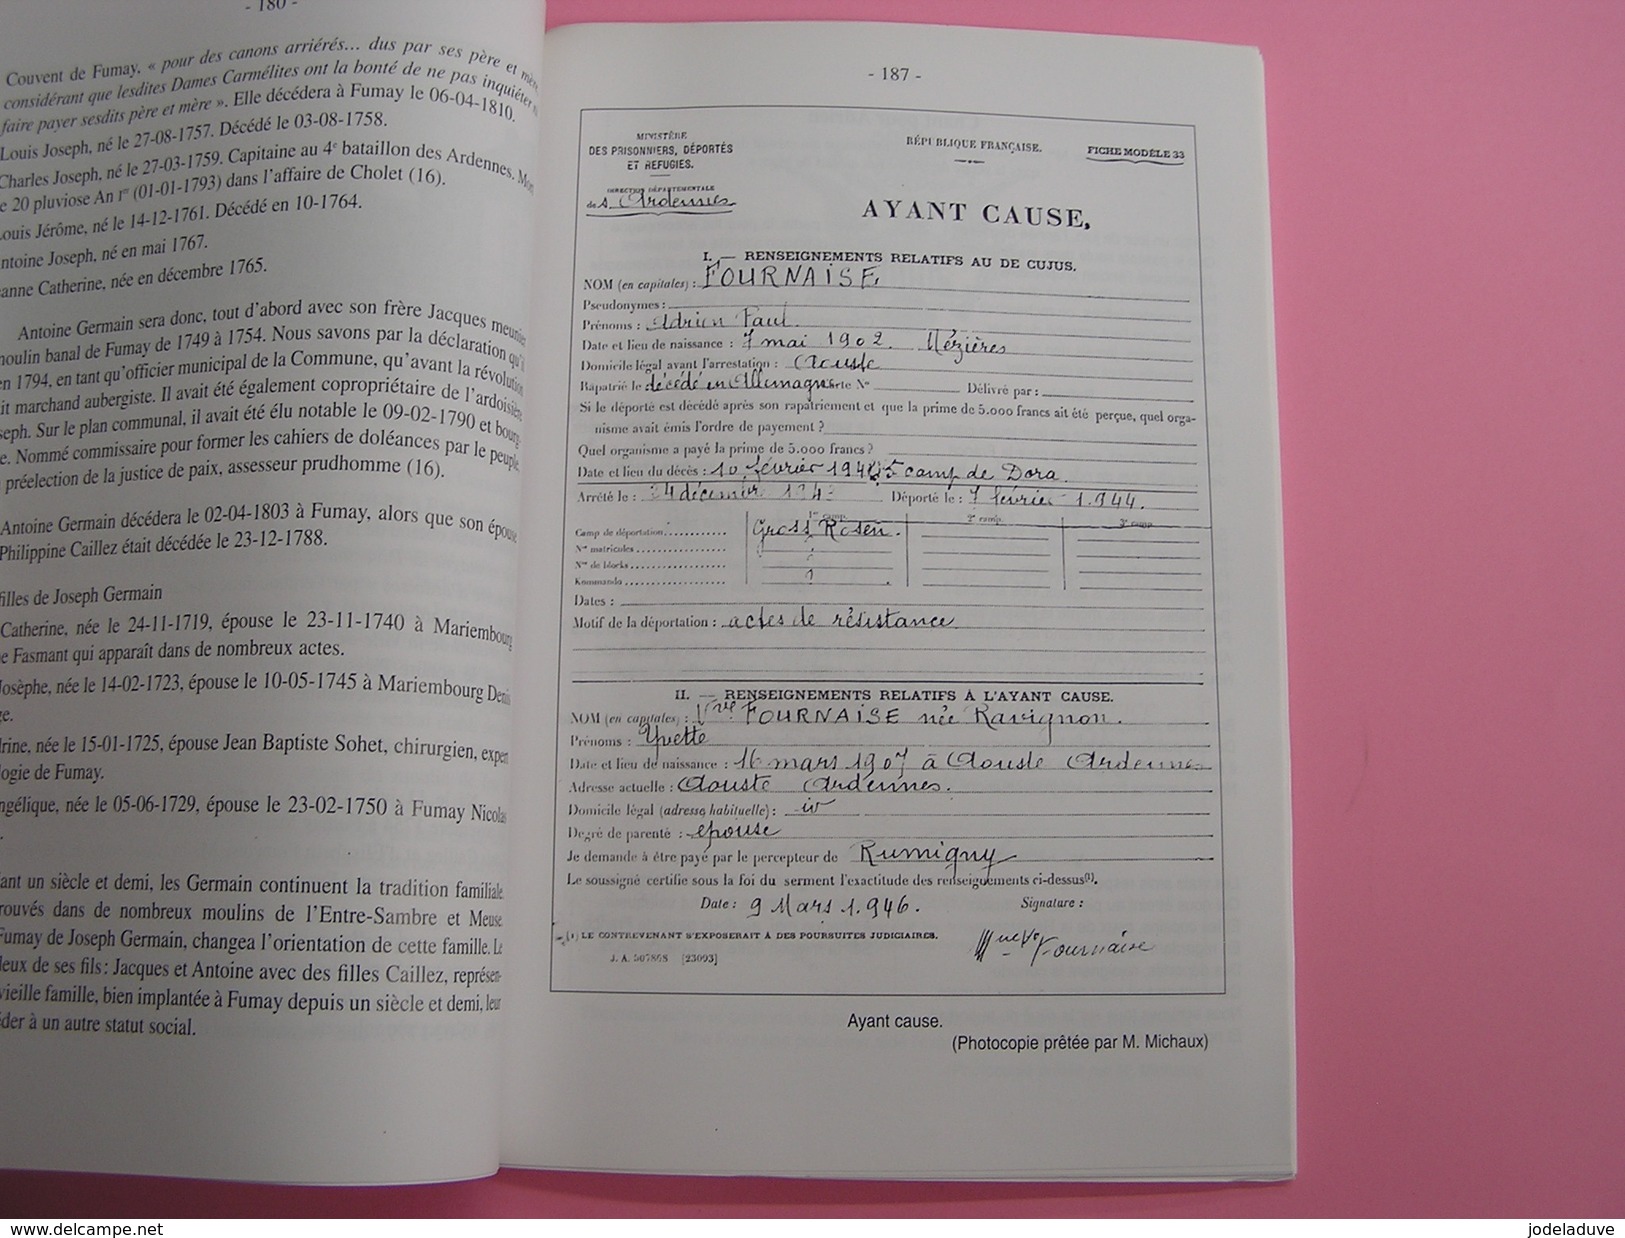 - 180 -
Couvent de Fumay, « pour des canons arriérés... dus par ses père et mère,
considérant que lesdites Dames Carmélites ont la bonté de ne pas inquiéter
faire payer sesdits père et mère ». Elle décédera à Fumay le 06-04-1810.
Louis Joseph, né le 27-08-1757. Décédé le 03-08-1758.
Charles Joseph, né le 27-03-1759. Capitaine au 4e bataillon des Ardennes. Mort
e 20 pluviose An Ier (01-01-1793) dans l'affaire de Cholet (16).
ouis Jérôme, né le 14-12-1761. Décédé en 10-1764.
ntoine Joseph, né en mai 1767.
anne Catherine, née en décembre 1765.
Antoine Germain sera donc, tout d'abord avec son frère Jacques meunier
moulin banal de Fumay de 1749 à 1754. Nous savons par la déclaration qu'il
en 1794, en tant qu'officier municipal de la Commune, qu'avant la révolution
it marchand aubergiste. Il avait été également copropriétaire de l'ardoisière
seph. Sur le plan communal, il avait été élu notable le 09-02-1790 et bourg-
e. Nommé commissaire pour former les cahiers de doléances par le peuple,
préelection de la justice de paix, assesseur prudhomme (16).
Antoine Germain décédera le 02-04-1803 à Fumay, alors que son épouse
Philippine Caillez était décédée le 23-12-1788.
filles de Joseph Germain
Catherine, née le 24-11-1719, épouse le 23-11-1740 à Mariembourg
e Fasmant qui apparaît dans de nombreux actes.
Josèphe, née le 14-02-1723, épouse le 10-05-1745 à Mariembourg Denis
ge.
drine, née le 15-01-1725, épouse Jean Baptiste Sohet, chirurgien, expert
logie de Fumay.
ngélique, née le 05-06-1729, épouse le 23-02-1750 à Fumay Nicolas
.
ant un siècle et demi, les Germain continuent la tradition familiale.
rouvés dans de nombreux moulins de l'Entre-Sambre et Meuse.
Fumay de Joseph Germain, changea l'orientation de cette famille. Le
deux de ses fils : Jacques et Antoine avec des filles Caillez, représen-
vieille famille, bien implantée à Fumay depuis un siècle et demi, leur
éder à un autre statut social.
- 187 -
MINISTÈRE
DES PRISONNIERS, DÉPORTÉS
ET REFUGIES.
RÉPUBLIQUE FRANÇAISE.
FICHE MODÈLE 33
DIRECTION DÉPARTEMENTALE
des Ardennes
AYANT CAUSE,
I. — RENSEIGNEMENTS RELATIFS AU DE CUJUS.
NOM (en capitales) : FOURNAISE
Pseudonymes :
Prénoms : Adrien Paul.
Date et lieu de naissance : 7 mai 1902. Mézières
Domicile légal avant l'arrestation : Aouste
Rapatrié le décédé en Allemagne Carte No Délivré par :
Si le déporté est décédé après son rapatriement et que la prime de 5.000 francs ait été perçue, quel orga-
nisme avait émis l'ordre de payement ?
Quel organisme a payé la prime de 5.000 francs ?
Date et lieu du décès : 10 février 1945 camp de Dora
Arrêté le : décembre 1943 Déporté le : 7 février 1.944.
1er camp. 2e camp. 3e camp.
Camp de déportation Gross Rosen.
Nos matricules
Nos de blocks
Kommando
Dates :
Motif de la déportation : actes de résistance
II. — RENSEIGNEMENTS RELATIFS À L'AYANT CAUSE.
NOM (en capitales) : Vve FOURNAISE née Ravignon.
Prénoms : Yvette
Date et lieu de naissance : 16 mars 1907 à Aouste Ardennes
Adresse actuelle : Aouste Ardennes.
Domicile légal (adresse habituelle) :
Degré de parenté : épouse
Je demande à être payé par le percepteur de Rumigny
Le soussigné certifie sous la foi du serment l'exactitude des renseignements ci-dessus(1).
Date : 9 Mars 1.946. Signature :
(1) LE CONTREVENANT S'EXPOSERAIT À DES POURSUITES JUDICIAIRES.
Fournaise
J. A. 507868 [23093]
Ayant cause.
(Photocopie prêtée par M. Michaux)
www.delcampe.net
jodeladuve